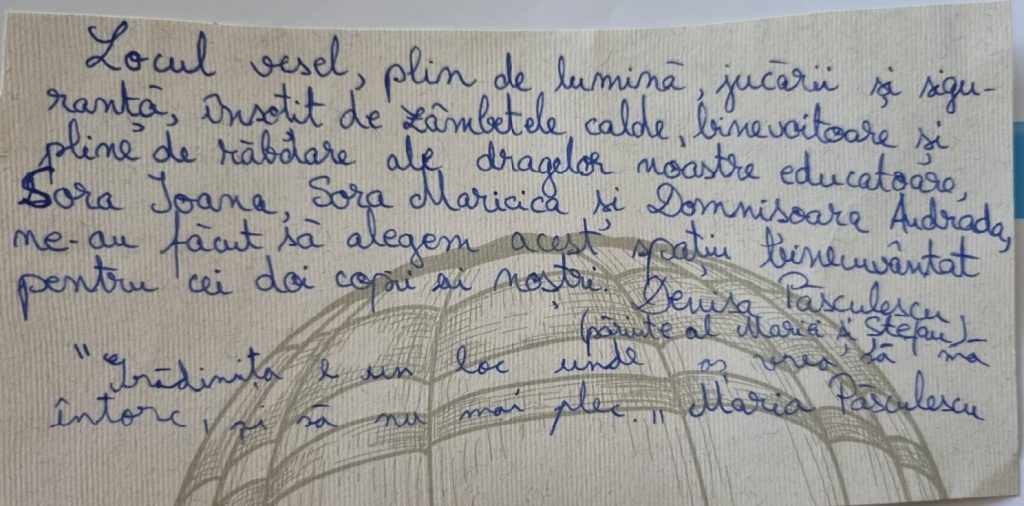 Locul vesel, plin de lumină, jucării și sigu-
ranță, însoțit de zâmbetele calde, binevoitoare și
pline de răbdare ale dragelor noastre educatoare,
Sora Ioana, Sora Maricica și Domnisoara Andrada,
ne-au făcut să alegem acest spațiu binecuvântat
pentru cei doi copii ai noștri. Denisa Păsculescu
(părinte al Mariei și Ștefan)
"Grădinița e un loc unde aș vrea să mă
întorc, și să nu mai plec." Maria Păsculescu